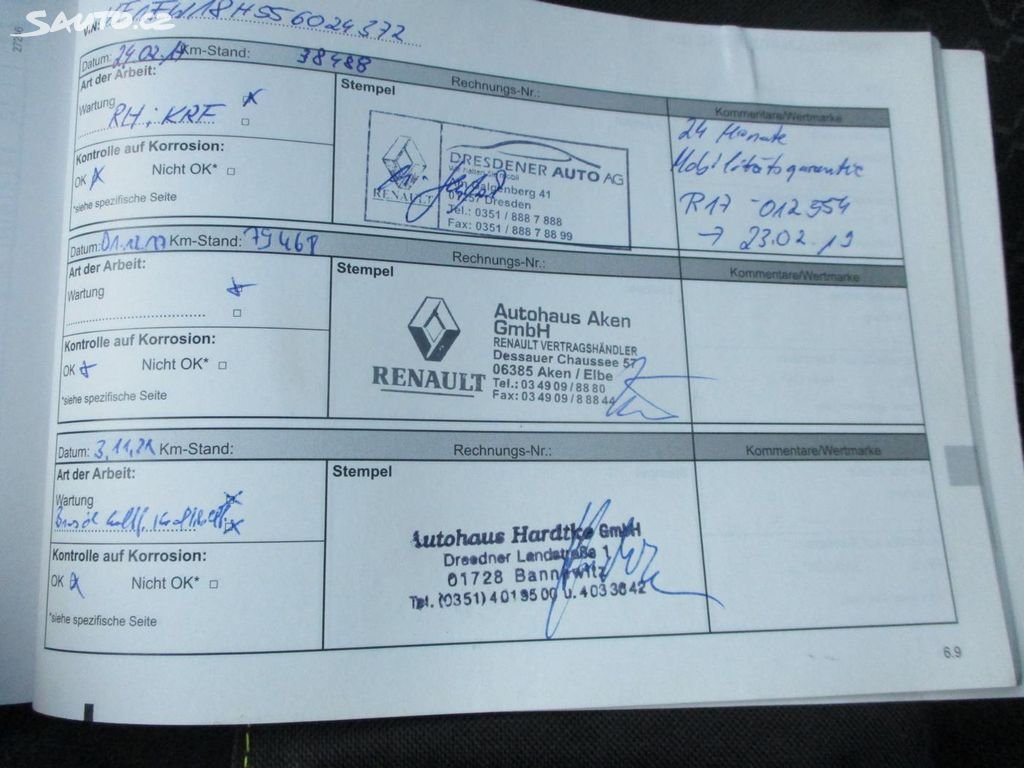 Sauto.cz
27256
V.N:
Datum: 24.02.17 Km-Stand: 38488
Rechnungs-Nr.:
Kommentare/Wertmarke
Art der Arbeit:
Wartung
RH; KRF
Kontrolle auf Korrosion:
OK Nicht OK*
*siehe spezifische Seite
Stempel
RENAULT
DRESDENER AUTO AG
Dresden
Tel.: 0351 / 888 7 888
Fax: 0351 / 888 7 88 99
24 Monate
Mobilitätsgarantie
R17 - 012554
→ 23.02.19
Datum: 01.12.17 Km-Stand: 79468
Rechnungs-Nr.:
Kommentare/Wertmarke
Art der Arbeit:
Wartung
Kontrolle auf Korrosion:
OK Nicht OK*
*siehe spezifische Seite
Stempel
RENAULT
Autohaus Aken
GmbH
RENAULT VERTRAGSHÄNDLER
Dessauer Chaussee 57
06385 Aken / Elbe
Tel.: 03 49 09 / 88 80
Fax: 03 49 09 / 8 88 44
Datum: 3.11.21 Km-Stand:
Rechnungs-Nr.:
Kommentare/Wertmarke
Art der Arbeit:
Wartung
Kontrolle auf Korrosion:
OK Nicht OK*
*siehe spezifische Seite
Stempel
Autohaus Hardtke GmbH
Dresdner Landstraße 1
01728 Bannewitz
Tel. (0351) 4 01 95 00 u. 4 03 36 42
6.9